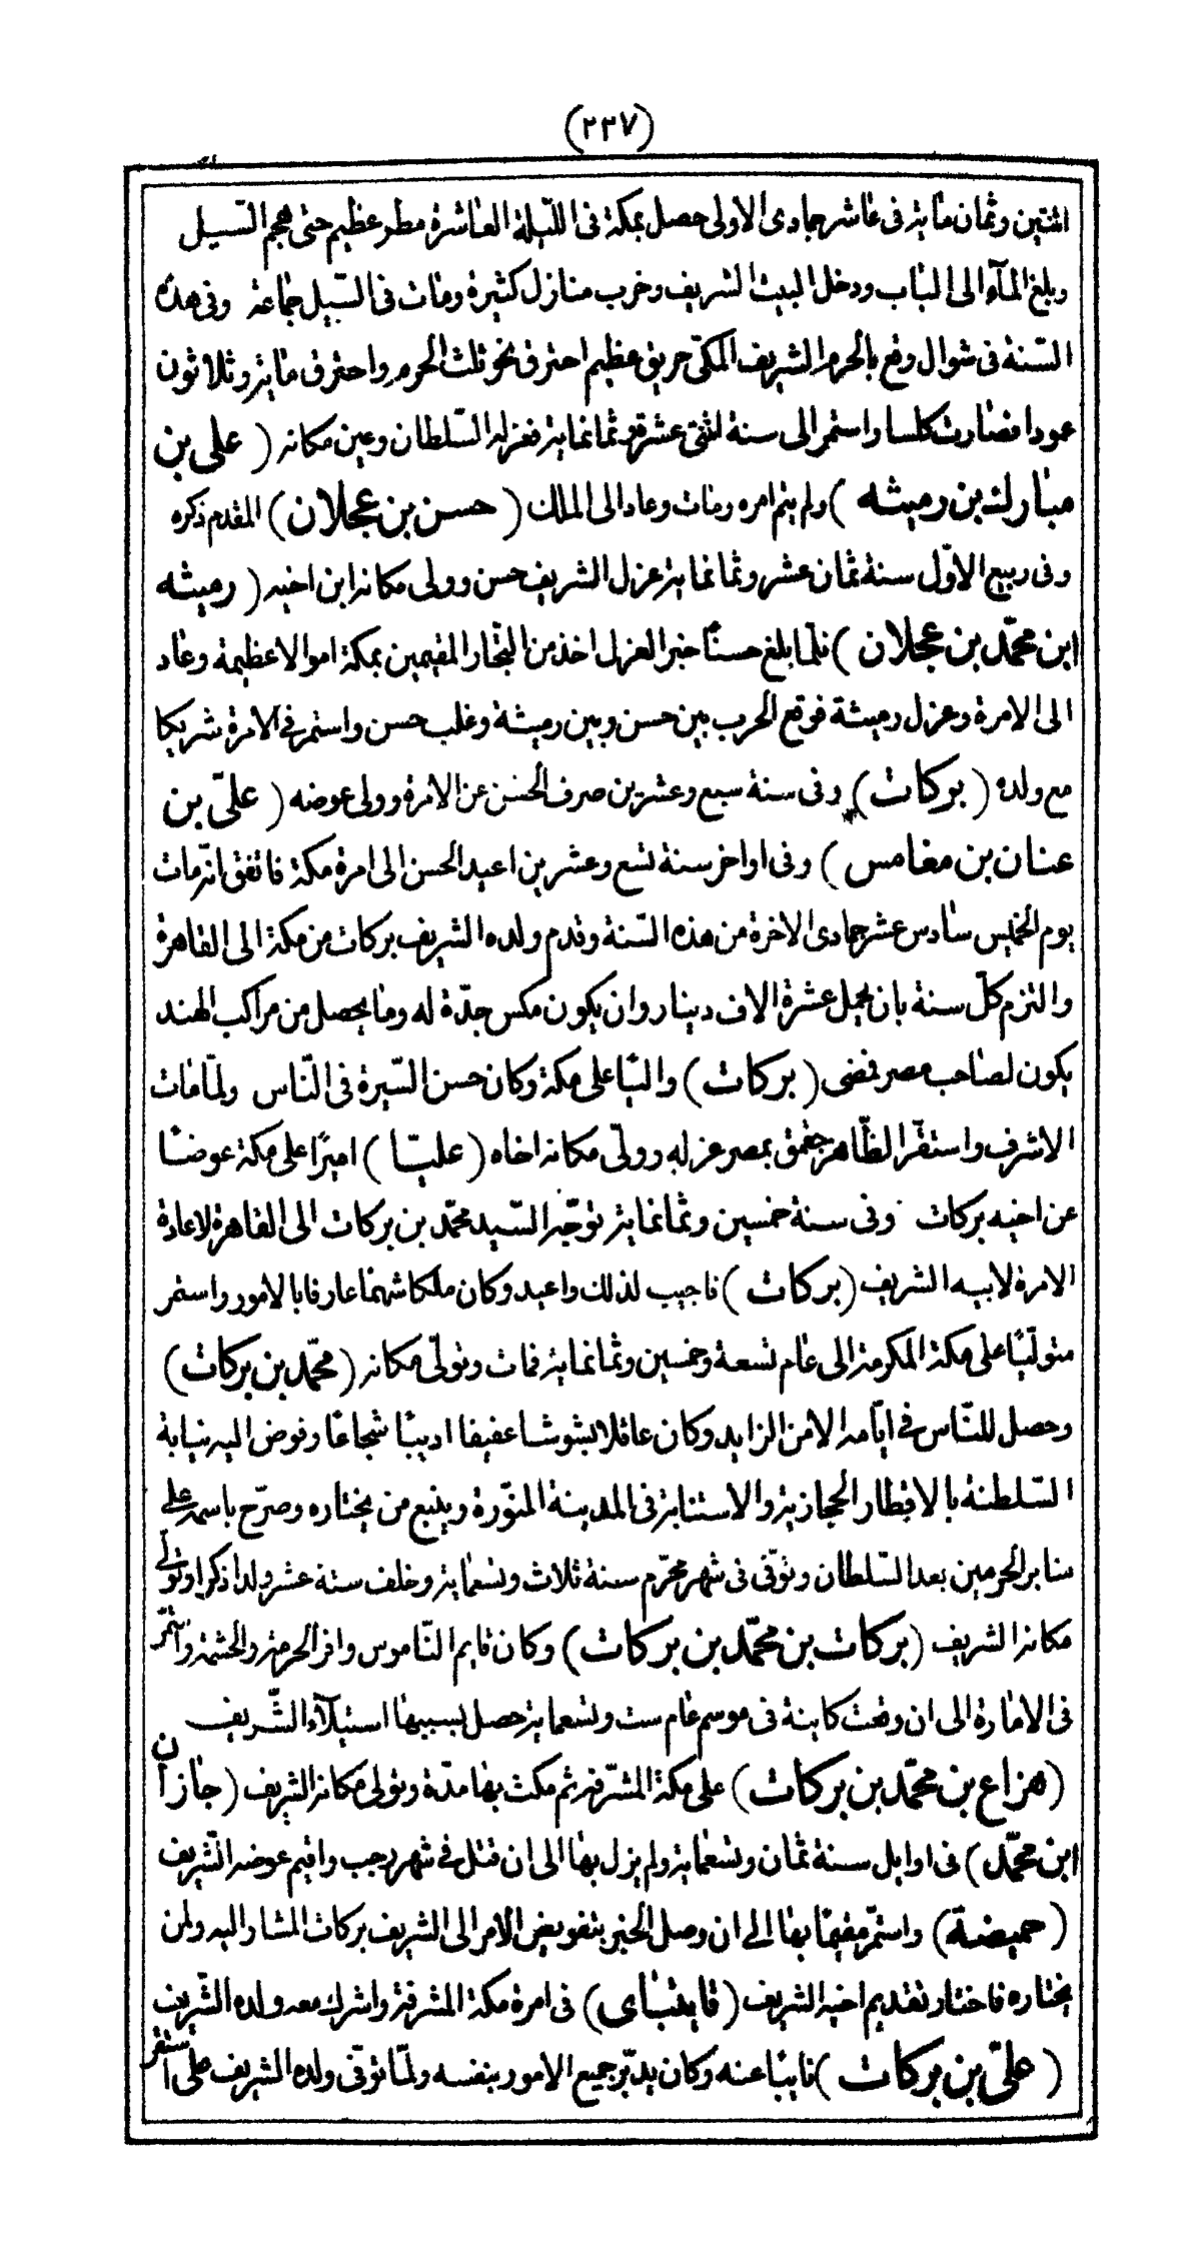 (٢٣٧)
اثنتين وثمان مائة فى عاشر جمادى الاولى حصل بمكة فى الليلة العاشرة مطر عظيم حتى هجم السيل
وبلغ المآء الى الباب ودخل البيت الشريف وخرب منازل كثيرة ومات فى السّيل جماعة وفى هذه
السّنة فى شوال وقع بالحرم الشريف المكّى حريق عظيم احترق نحو ثلث الحرم واحترق مائة وثلاثون
عودا فصارت كلسا واستمر الى سنة اثنتى عشرة وثمانمائة فعزله السّلطان وعين مكانه ( على بن
مبارك بن رميثه ) ولم يتم امره ومات وعاد الى الملك ( حسن بن عجلان ) المقدم ذكره
وفى ربيع الاوّل سنة ثمان عشر وثمانمائة عزل الشريف حسن وولى مكانه ابن اخيه ( رميثه
ابن محمّد بن عجلان ) فلمّا بلغ حسنًا خبر العزل اخذ من التجّار المقيمين بمكة اموالا عظيمة وعاد
الى الامرة وعزل رميثة فوقع الحرب بين حسن وبين رميثة وغلب حسن واستمر فى الامرة شريكا
مع ولده ( بركات ) وفى سنة سبع وعشرين صرف الحسن عن الامرة وولى عوضه ( علىّ بن
عنان بن مغامس ) وفى اواخر سنة تسع وعشرين اعيد الحسن الى امرة مكة فاتفق انّه مات
يوم الخميس سادس عشر جمادى الاخرة من هذه السّنة وقدم ولده الشريف بركات من مكة الى القاهرة
والتزم كلّ سنة بان يحمل عشرة الاف دينار وان يكون مكس جدّة له وما يحصل من مراكب الهند
يكون لصاحب مصر فمضى ( بركات ) واليًا على مكة وكان حسن السّيرة فى النّاس ولمّا مات
الاشرف واستقرّ الظّاهر جقمق بمصر عزله وولّى مكانه اخاه ( عليّا ) اميرًا على مكة عوضًا
عن اخيه بركات وفى سنة خمسين وثمانمائة توجّه السّيد محمّد بن بركات الى القاهرة لاعادة
الامرة لابيه الشريف ( بركات ) فاجيب لذلك واعيد وكان ملكا شهما عارفا بالامور واستمر
متولّيًا على مكة المكرمة الى عام تسعة وخمسين وثمانمائة فمات وتولّى مكانه ( محمّد بن بركات )
وحصل للنّاس فى ايّامه الامن الزايد وكان عاقلا بشوشا عفيفا اديبًا شجاعًا وفوض اليه نيابة
السّلطنة بالاقطار الحجازية والاستنابة فى المدينة المنوّرة وينبع من يختاره وصرّح باسمه على
منابر الحرمين بعد السّلطان وتوفّى فى شهر محرّم سنة ثلاث وتسعمائة وخلف ستة عشر ولدا ذكرا وتولّى
مكانه الشريف ( بركات بن محمّد بن بركات ) وكان قايم النّاموس وافر الحرمة والحشمة واستمّر
فى الامارة الى ان وقعت كاينة فى موسم عام ست وتسعمائة حصل بسببها استيلآء الشّريف
( هزاع بن محمّد بن بركات ) على مكة المشرّفة ثم مكث بها مدّة وتولى مكانه الشريف ( جازان
ابن محمّد ) فى اوايل سنة ثمان وتسعمائة ولم يزل بها الى ان قتل فى شهر رجب واقيم عوضه الشّريف
( حميضة ) واستمّر مقيمًا بها الى ان وصل الخبر بتفويض الامر الى الشريف بركات المشار اليه ولمن
يختاره فاختار تقديم اخيه الشريف ( قايتباى ) فى امرة مكة المشرفة واشرك معه ولده الشّريف
( علىّ بن بركات ) نايبًا عنه وكان يدبّر جميع الامور بنفسه ولمّا توفّى ولده الشريف على استقر